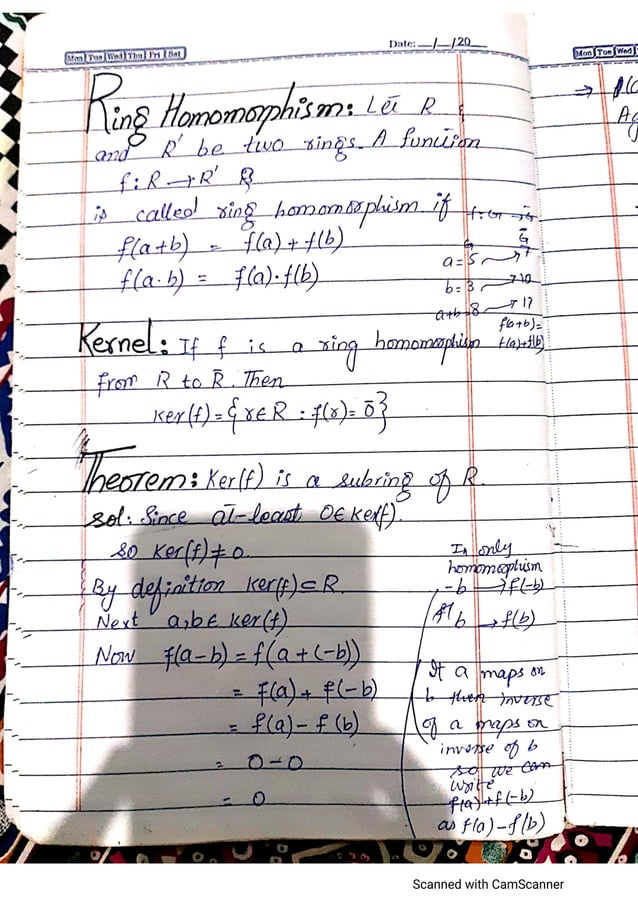 Mon Tue Wed Thu Fri Sat
Date: __/__/20__
Mon Tue Wed
Ring Homomorphism: Let R
and R' be two rings. A function
f: R → R'
is called ring homomorphism if
f(a+b) = f(a) + f(b)
f(a·b) = f(a)·f(b)
a = 5 → 7
b = 3 → 10
a+b = 8 → 17
f(a+b) =
f(a)+f(b)
Kernel: If f is a ring homomorphism
from R to R̄. Then
Ker(f) = {r ∈ R : f(r) = 0̄}
Theorem: Ker(f) is a subring of R.
Sol: Since at-least 0 ∈ Ker(f).
so Ker(f) ≠ 0.
By definition Ker(f) ⊂ R.
Next a, b ∈ Ker(f)
Now f(a-b) = f(a+(-b))
= f(a) + f(-b)
= f(a) - f(b)
= 0 - 0
= 0
In only
homomorphism
-b → f(-b)
b → f(b)
If a maps on
b then inverse
of a maps on
inverse of b
so we can
write
f(a)+f(-b)
as f(a)-f(b)
Scanned with CamScanner